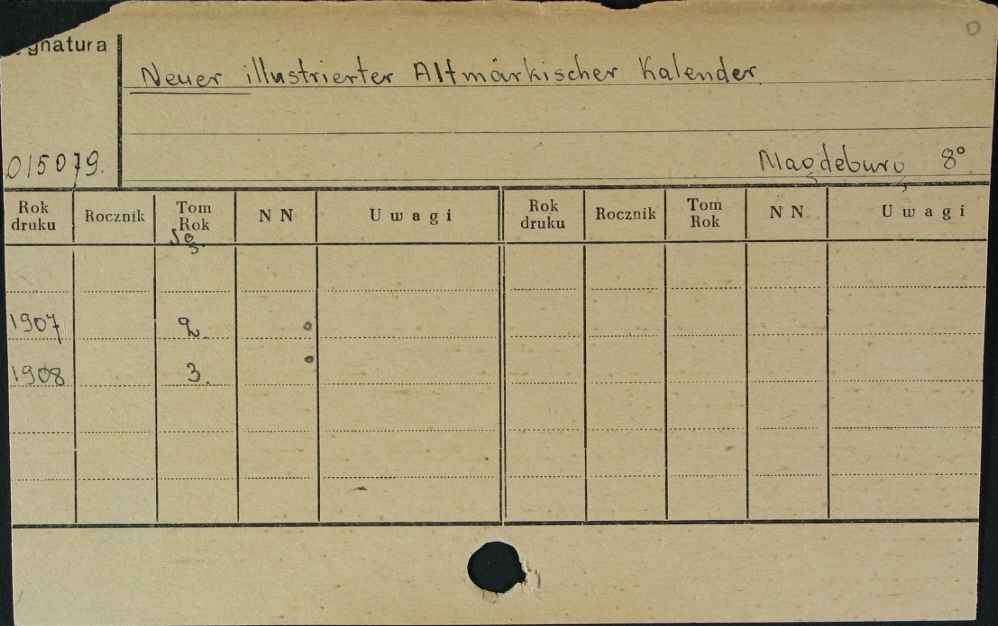 gnatura
Neuer illustrierter Altmärkischer Kalender
015079.
Magdeburg 8°
Rok druku Rocznik Tom Rok NN Uwagi Rok druku Rocznik Tom Rok NN Uwagi
1907 2.
1908 3.